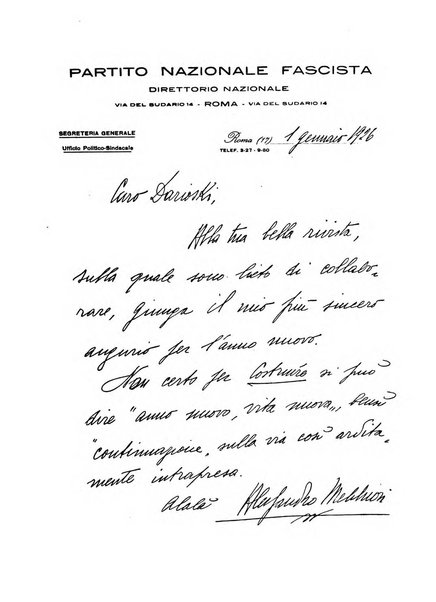 PARTITO NAZIONALE FASCISTA
DIRETTORIO NAZIONALE
VIA DEL SUDARIO 14 - ROMA - VIA DEL SUDARIO 14
SEGRETERIA GENERALE
Ufficio Politico-Sindacale
Roma (17) 1 gennaio 1926
TELEF. 3-27 - 9-80
Caro Darioski,
Alla tua bella rivista,
sulla quale sono lieto di collabo-
rare, giunga il mio più sincero
augurio per l'anno nuovo.
Non certo per Costruire si può
dire "anno nuovo, vita nuova", bensì
"continuazione, sulla via così ardita-
mente intrapresa.
Alalà
Alessandro Melchiori